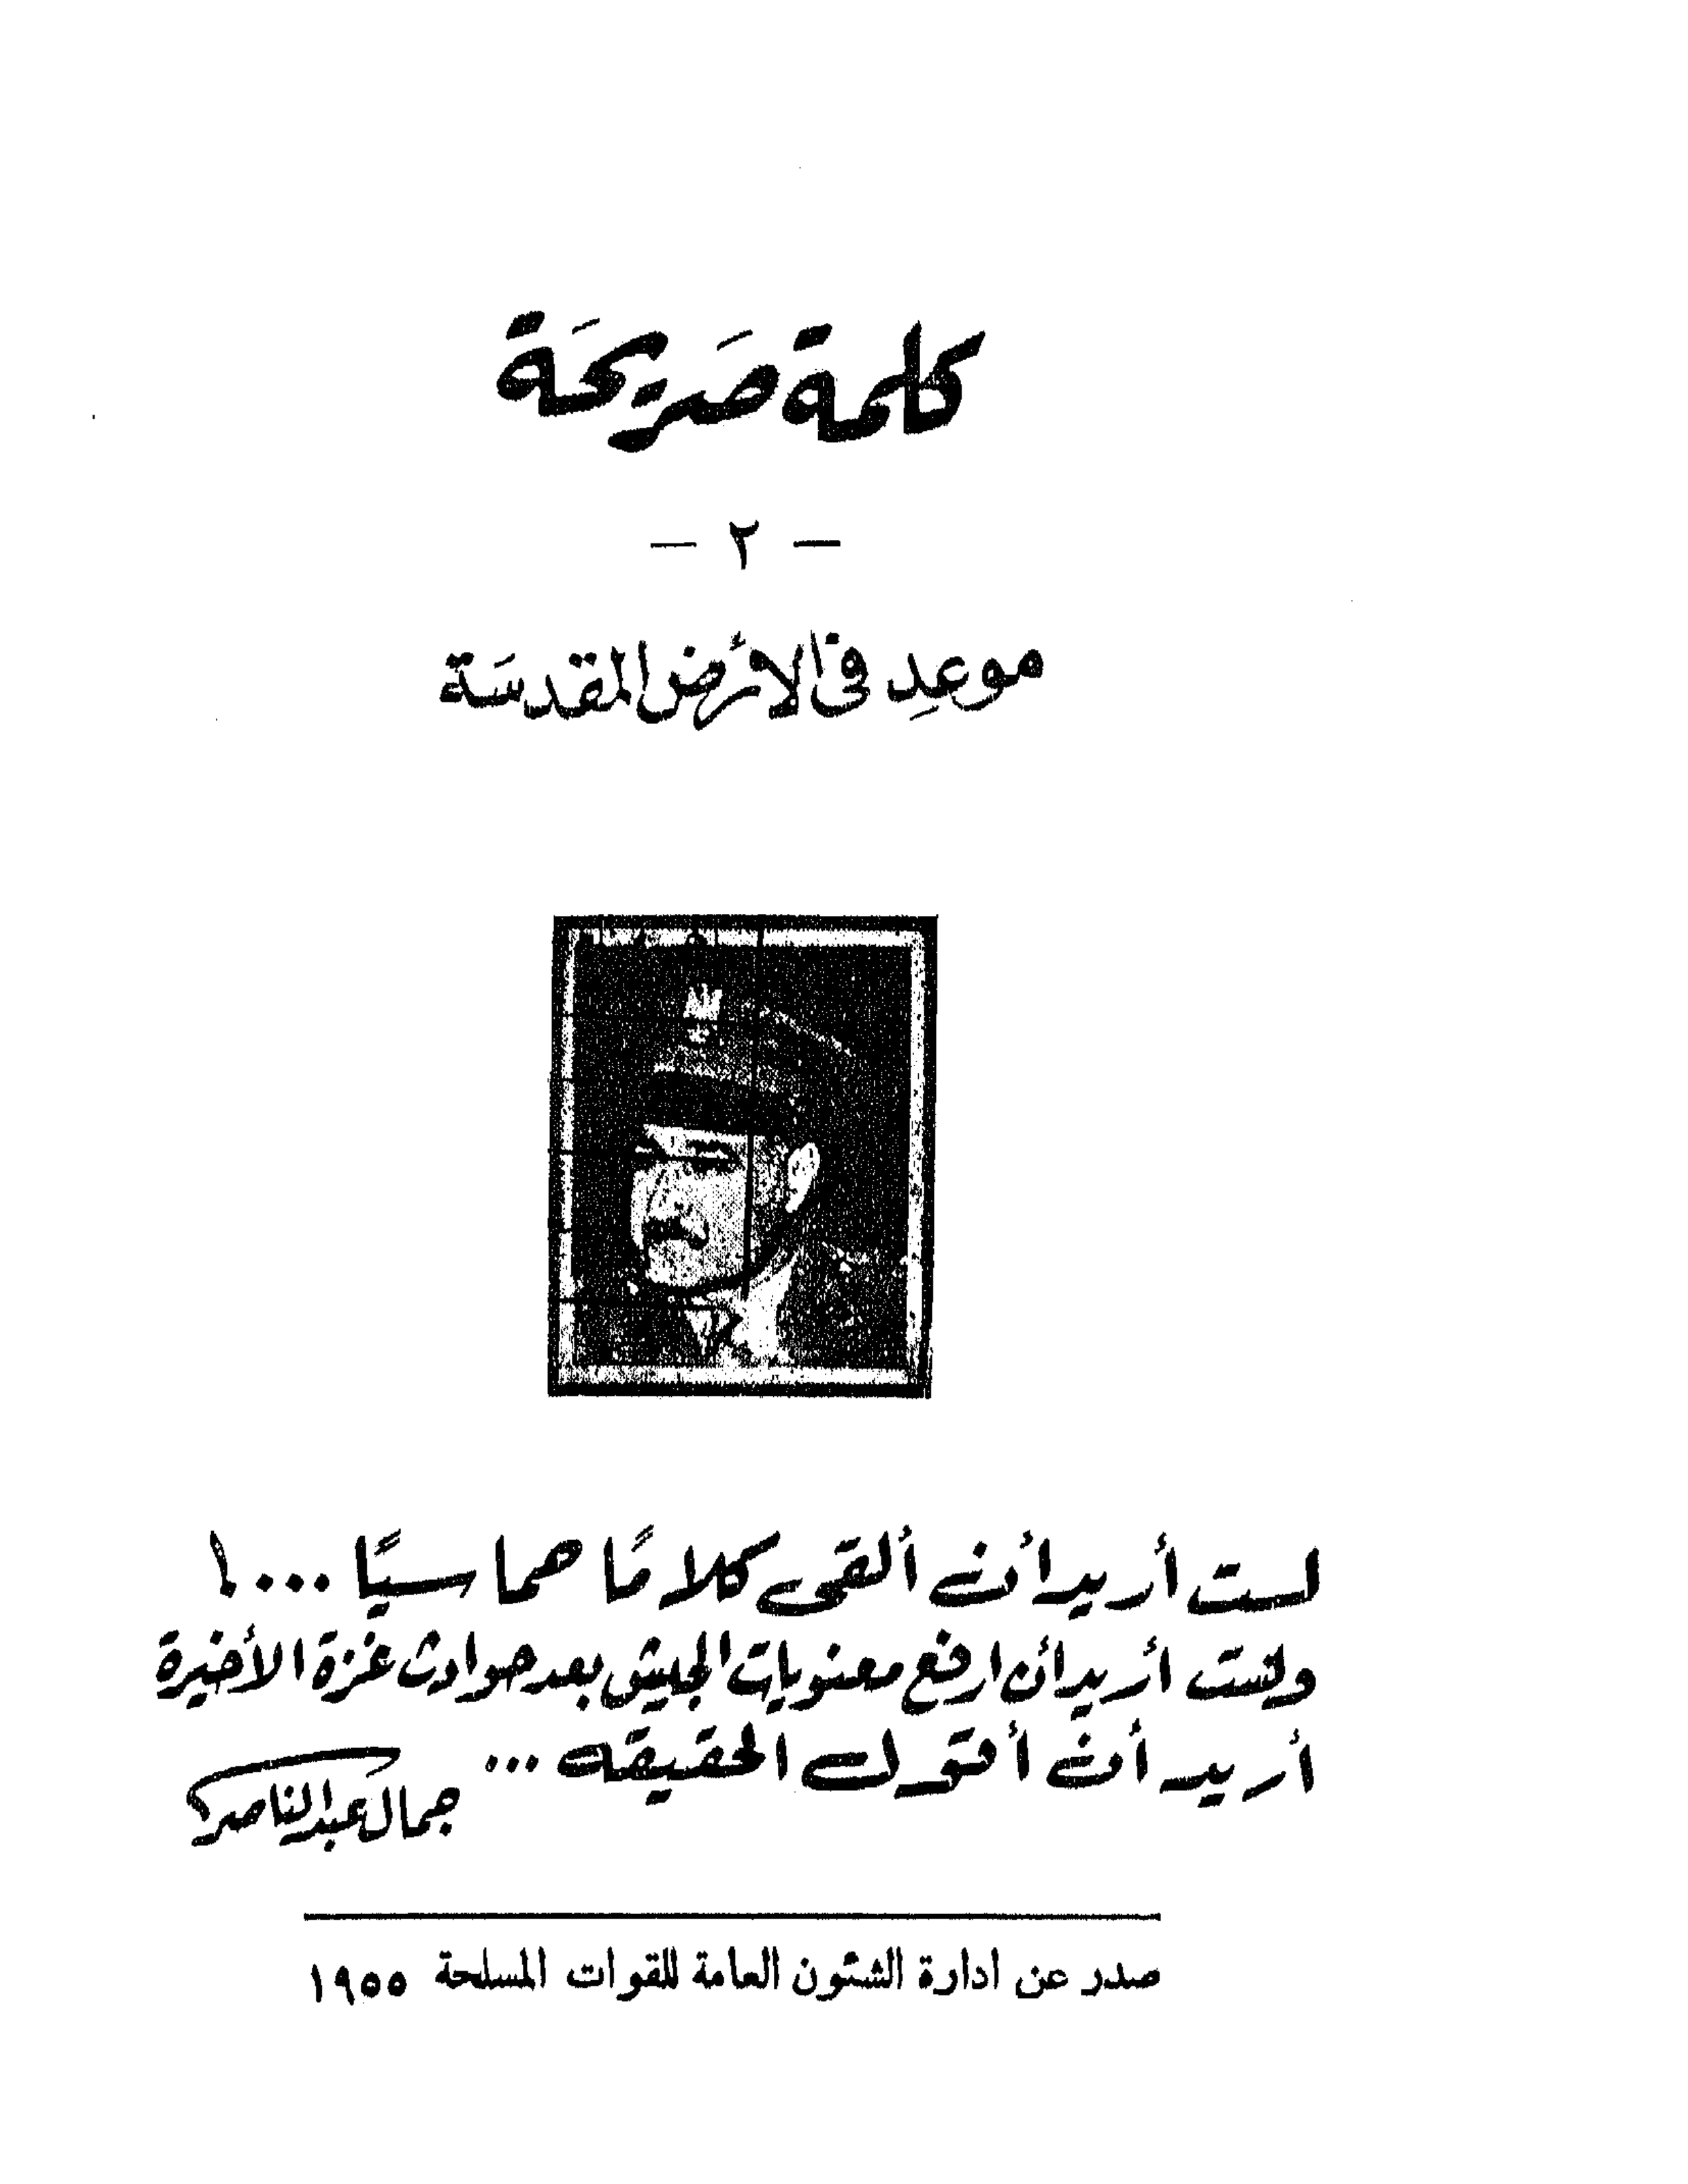 كلمة صَريحَة
— ٢ —
موعدِ فى الأرض المقدسَة
لست أريد أن ألقى كلامًا حماسيًا ....!
ولست أريد أن ارفع معنويات الجيش بعد حوادث غزة الأخيرة
أريد أن أقول الحقيقه ...
جمال عبد الناصر
صدر عن ادارة الشئون العامة للقوات المسلحة ١٩٥٥